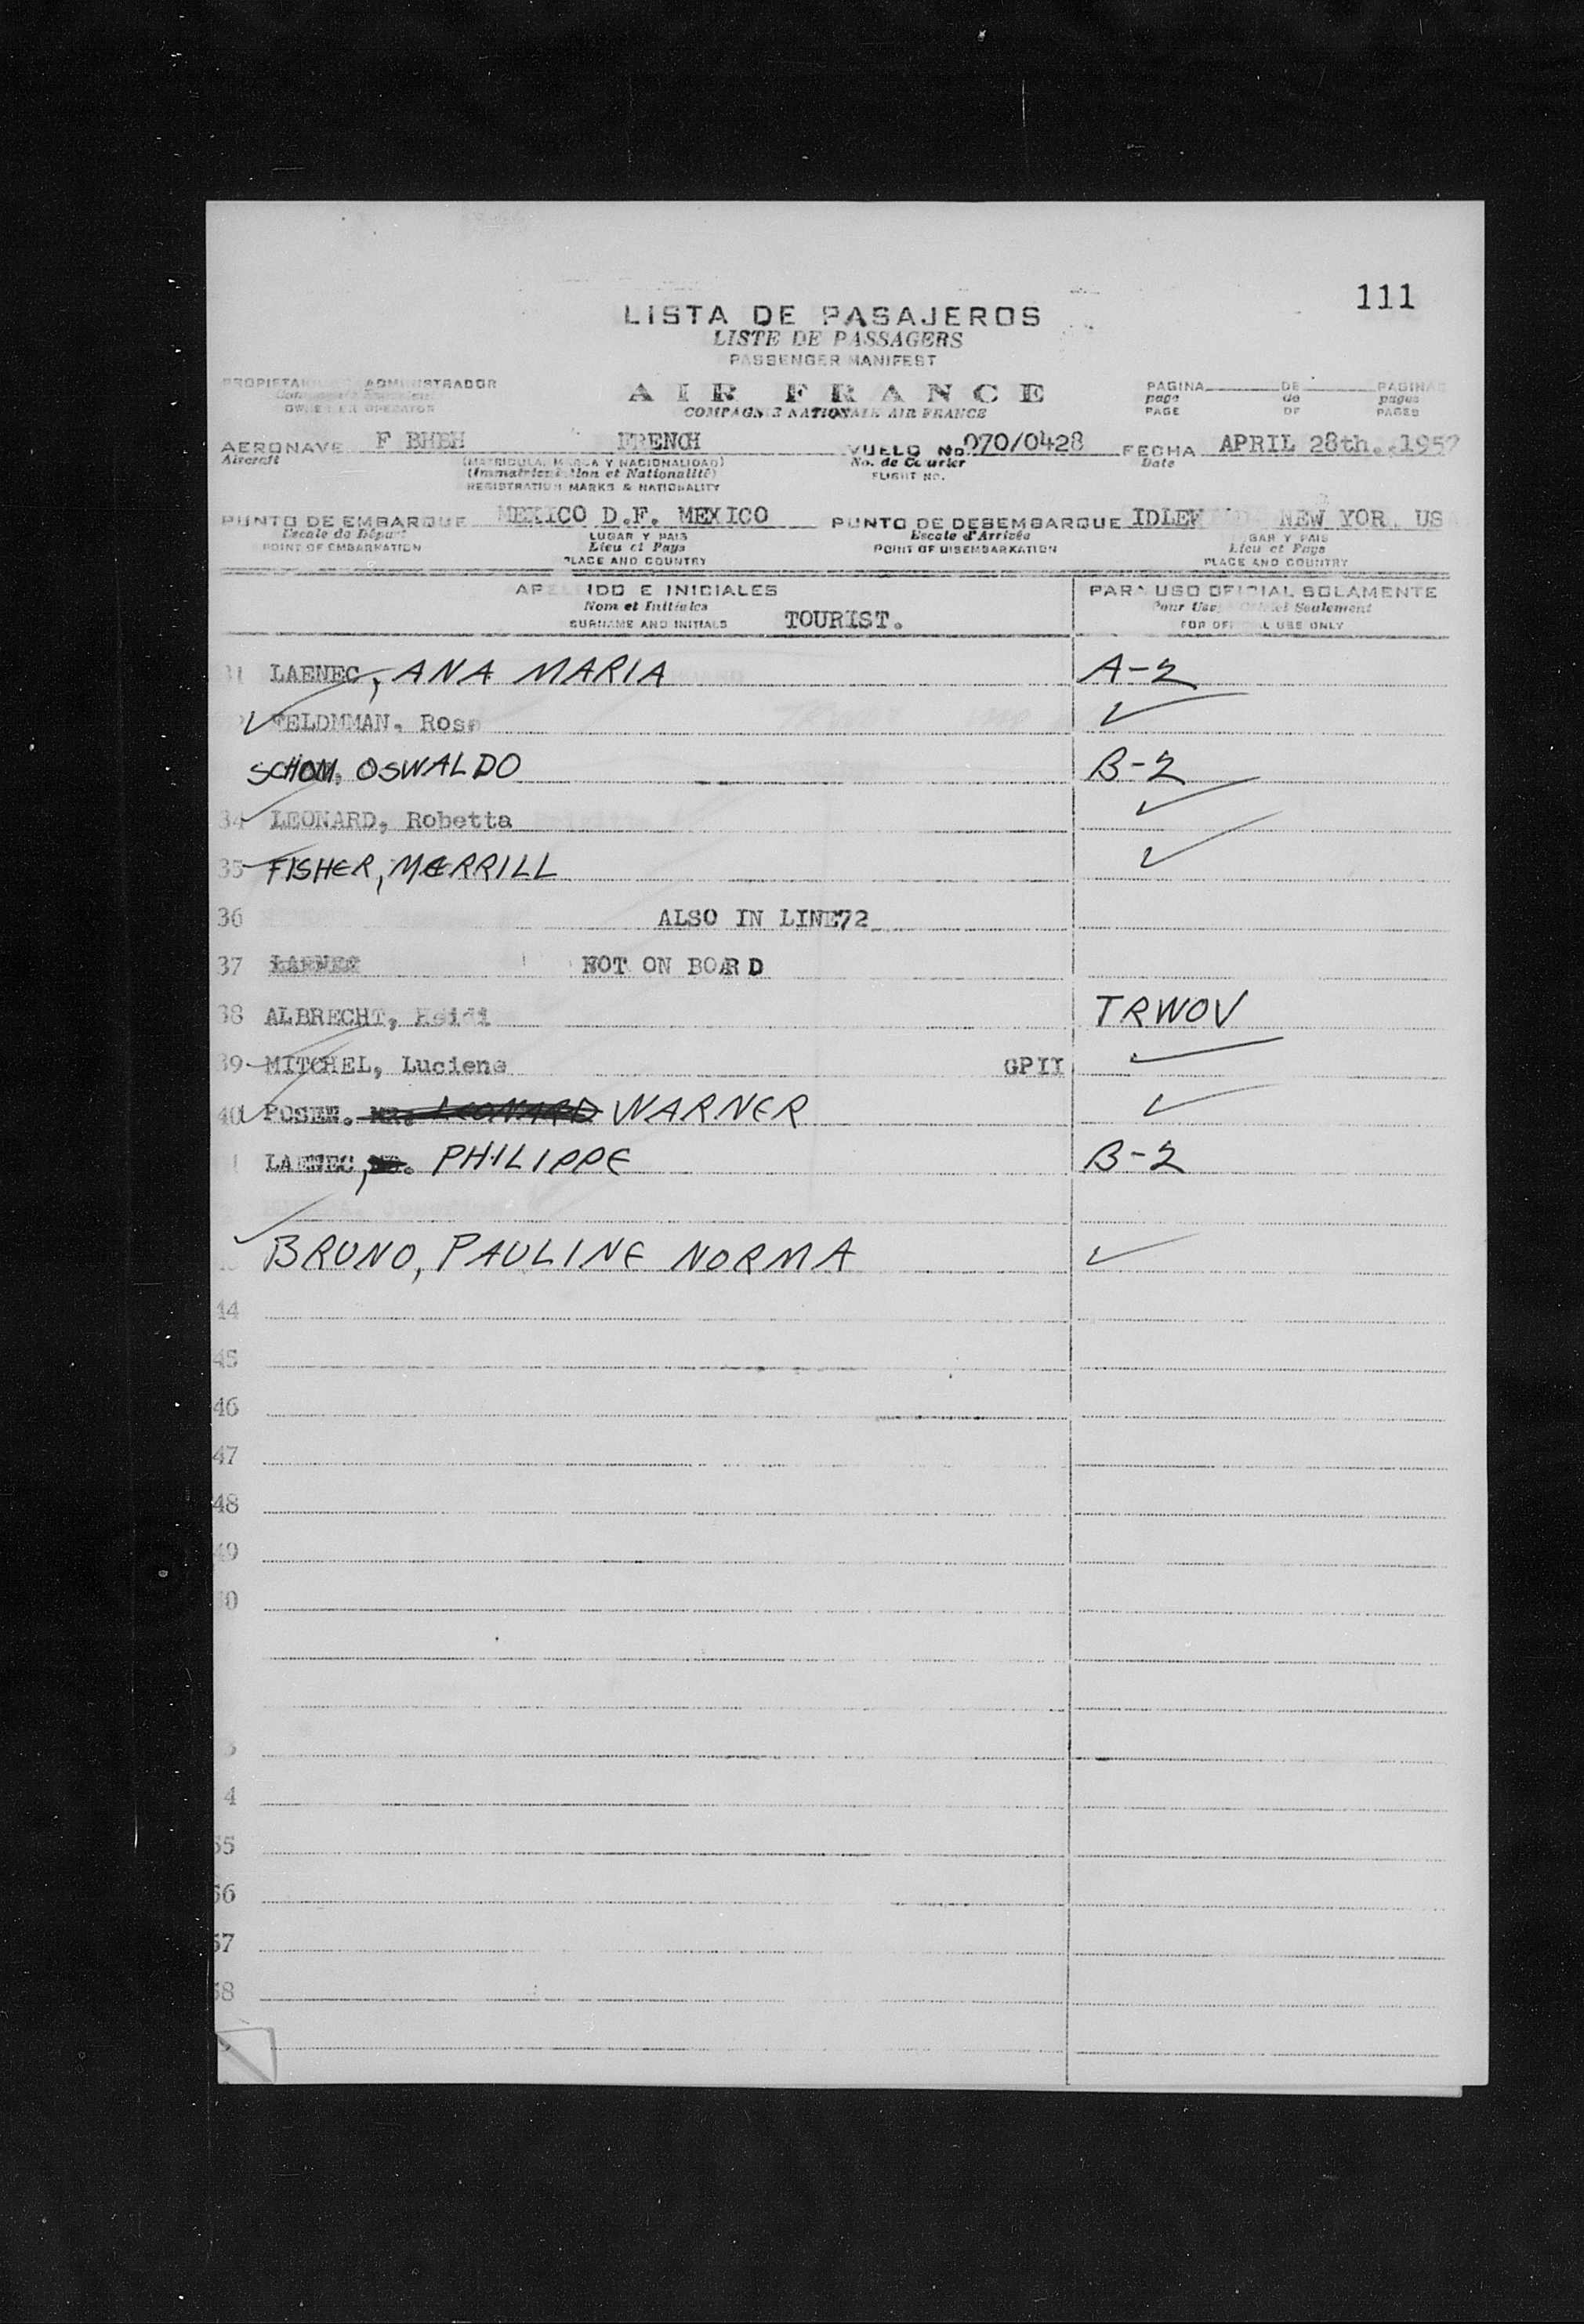 111
LISTA DE PASAJEROS
LISTE DE PASSAGERS
PASSENGER MANIFEST
AIR FRANCE
COMPAGNIE NATIONALE AIR FRANCE
PAGINA DE PAGINAS
page de pages
PAGE OF PAGES
OWNER OR OPERATOR
AERONAVE F BHBH FRENCH VUELO No. 070/0428 FECHA APRIL 28th. 1957
Aircraft (MATRICULA, MARCA Y NACIONALIDAD) No. de Courier Date
(Immatriculation et Nationalité) FLIGHT NO.
REGISTRATION MARKS & NATIONALITY
PUNTO DE EMBARQUE MEXICO D.F. MEXICO PUNTO DE DESEMBARQUE IDLEW D NEW YOR US
Escale de Départ LUGAR Y PAIS Escale d'Arrivée GAR Y PAIS
POINT OF EMBARKATION Lieu et Pays POINT OF DISEMBARKATION Lieu et Pays
PLACE AND COUNTRY PLACE AND COUNTRY
APELLIDO E INICIALES PARA USO OFICIAL SOLAMENTE
Nom et Initiales Pour Usage Officiel Seulement
SURNAME AND INITIALS TOURIST. FOR OFFICIAL USE ONLY
31 LAENEC, ANA MARIA A-2
FELDMMAN. Rose
SCHON, OSWALDO B-2
34 LEONARD, Robetta
35 FISHER, MERRILL
36 ALSO IN LINE72
37 LAENEC NOT ON BOARD
38 ALBRECHT, Heidi TRWOV
39 MITCHEL, Luciene GPII
40 POSEN. MR. LEONARD WARNER
LAENEC, PHILIPPE B-2
BRUNO, PAULINE NORMA
44
45
46
47
48
49
0
4
55
56
57
58